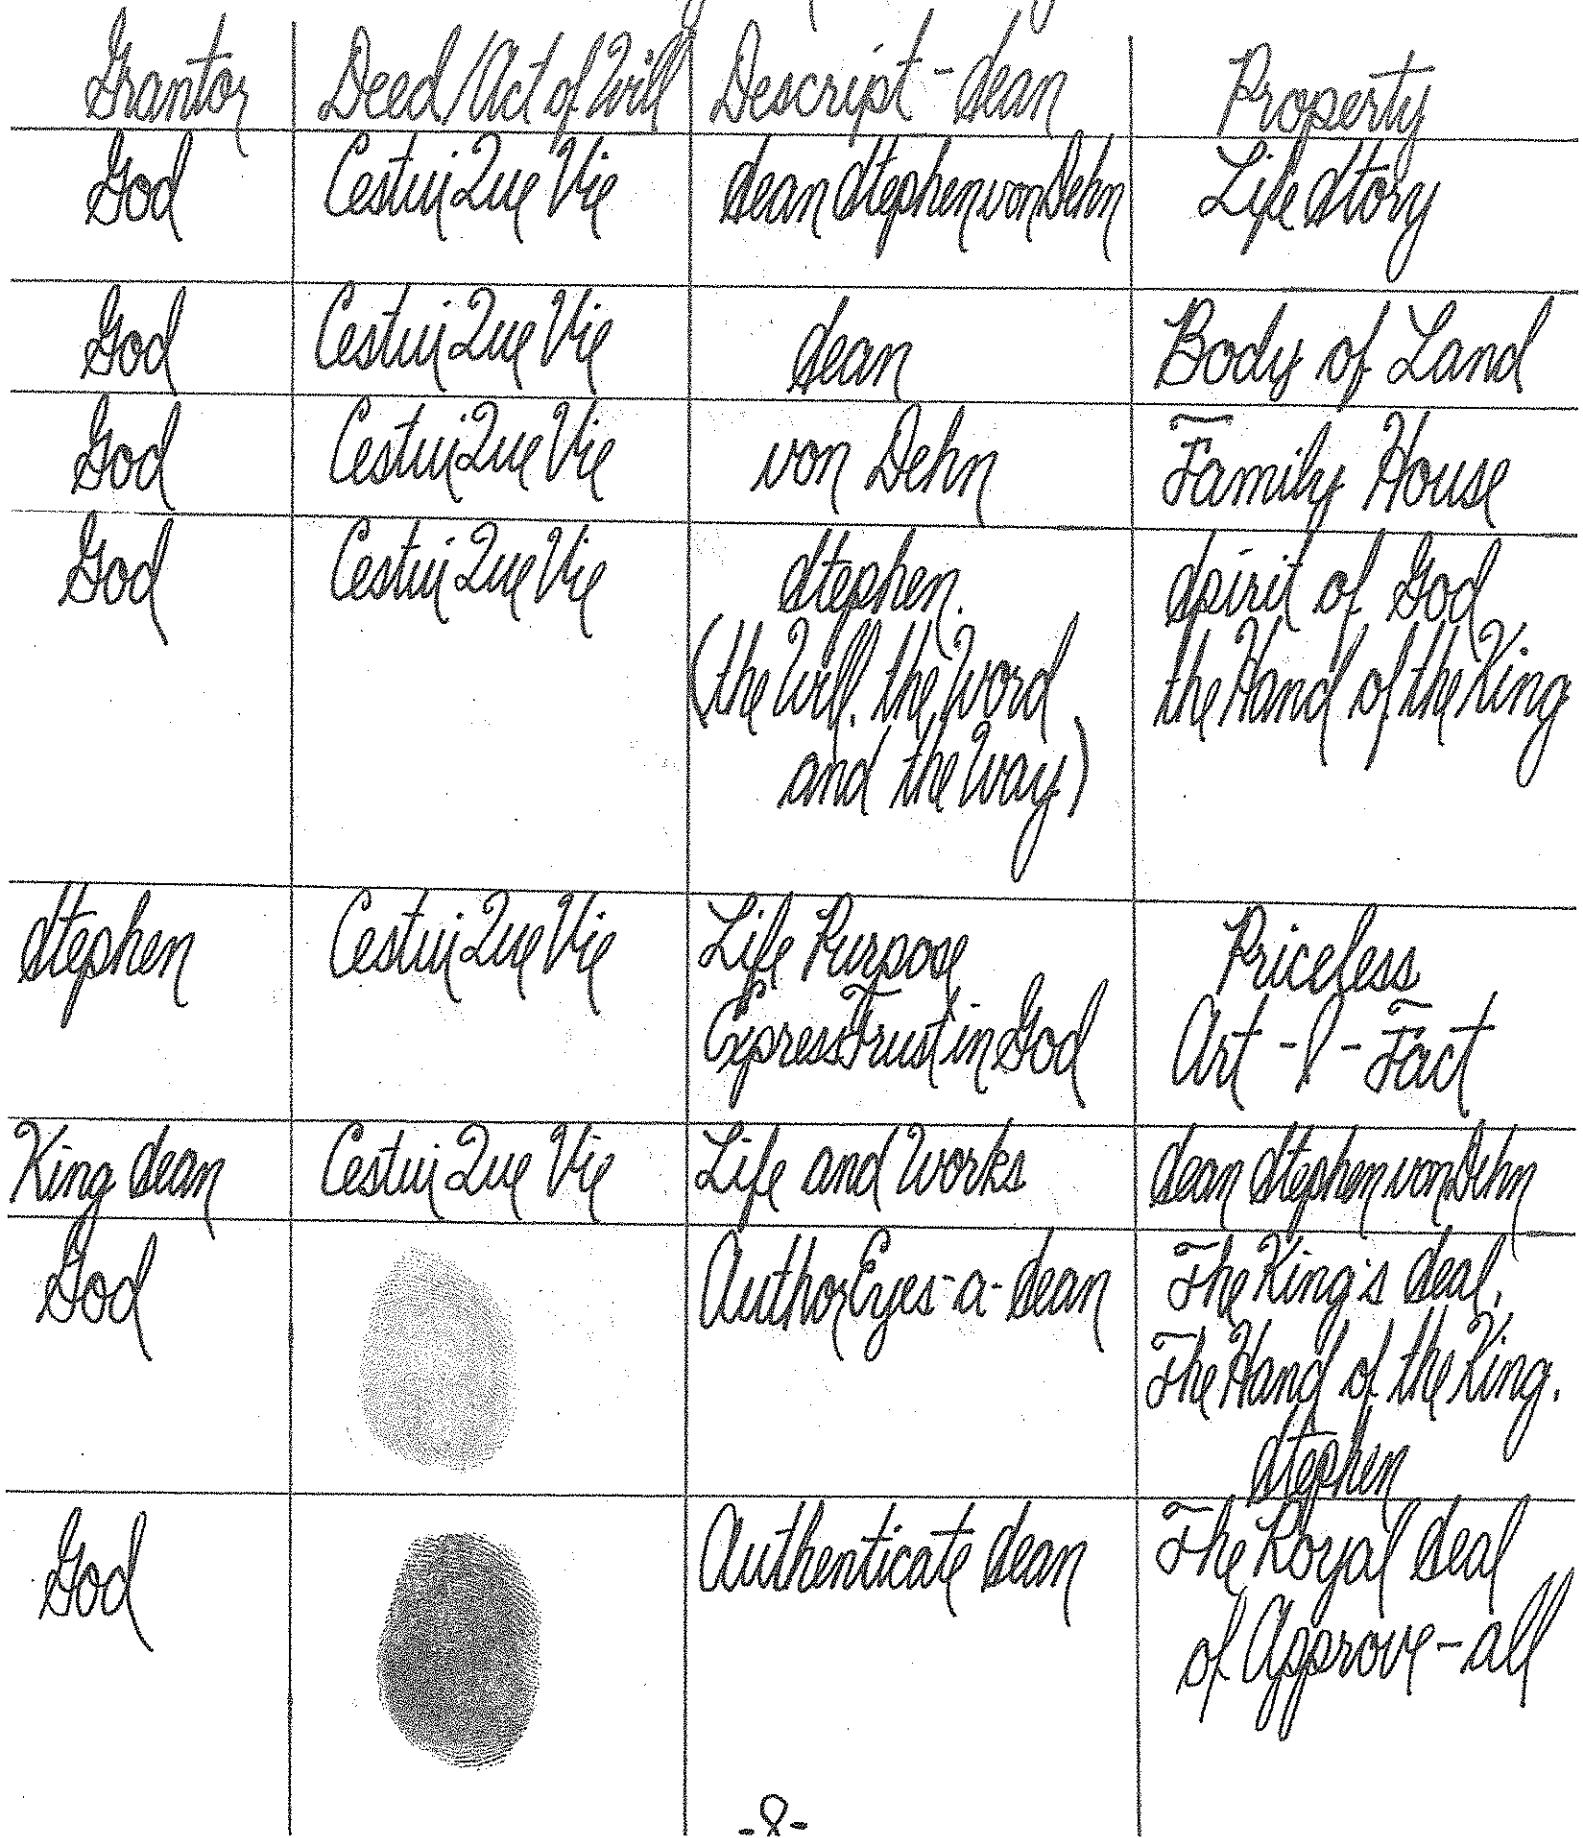 Grantor Deed/Act of Will Descript-Sean Property
God Cestui Que Vie Sean Stephen von Dehn Life Story
God Cestui Que Vie Sean Body of Land
God Cestui Que Vie von Dehn Family House
God Cestui Que Vie Stephen. Spirit of God
(the Will, the Word the Hand of the King
and the Way)
Stephen Cestui Que Vie Life Purpose Priceless
Express Trust in God Art-I-Fact
King Sean Cestui Que Vie Life and Works Sean Stephen von Dehn
God AuthorEyes-a-Sean The King's Seal,
The Hand of the King.
Stephen
God Authenticate Sean The Royal Seal
of Approve-all
-8-